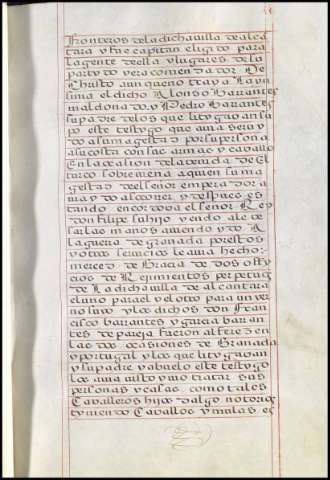 fronteros de la dicha uilla de alcan
tara y fue capitan eligido para
la gente de ella y lugares de su
partido y era comendador De
Christo aunque no traya La yn
sinia el dicho Alonso Barantes
maldonado. y Pedro Barantes
su padre de los que litygan sa
po este testygo que auia seruy
do a su magestad por su persona
a su costa con sus armas y cauallo
En la ocasion de la uenida de El
turco sobre uiena a quien su ma
gestad de el señor emperador a
uia ydo a socorer y despues es
tando en cordoua el señor Rey
don filipe su hijo yendo a le be
sar las manos auiendo ydo A
la guera de granada por estos
y otros seruicios le auia hecho
merced de Gracia de dos ofy
cios de Regimientos perpetuos
de La dicha uilla de alcantara
el uno para el y el otro para un yer
no suyo y los dichos don fran
cisco barrantes y garcia baran
tes de pareja fueron alferez en
las dos ocasiones de Granada
y portugal y los que litygan
y su padre y abuelo este testygo
los auia uisto y uio tratar sus
personas y casas como tales
Caualleros hijos dalgo notorios
tyniendo Cauallos y mulas es